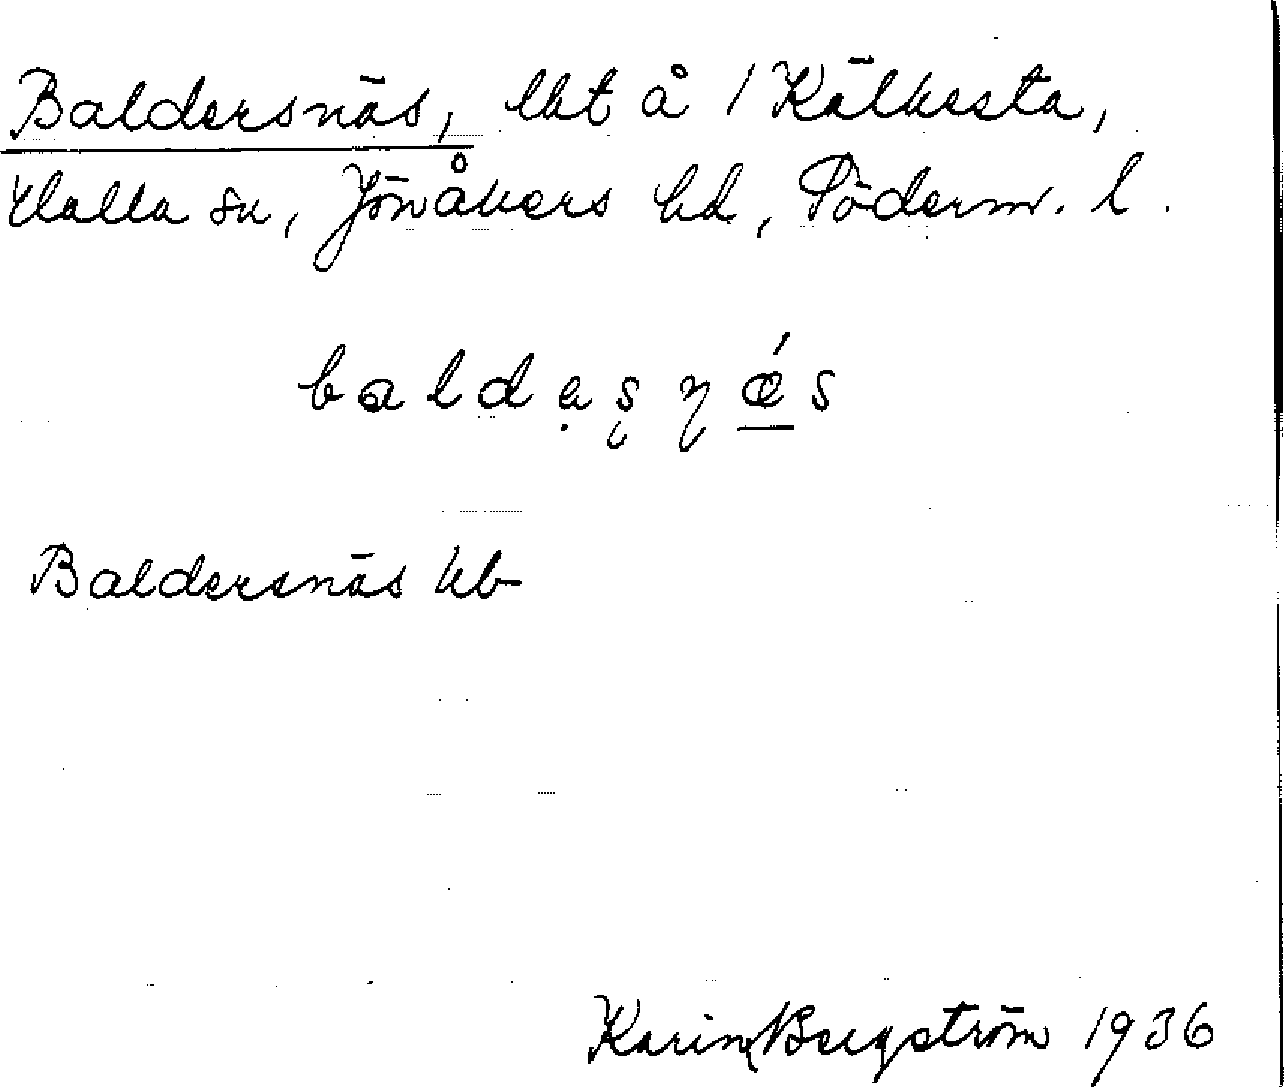 Baldersnäs, lht å 1 Kälkesta,
Halla sn, Jönåkers hd, Söderm. l.
baldạʂɳǽs
Baldersnäs kb
Karin Bergström 1936